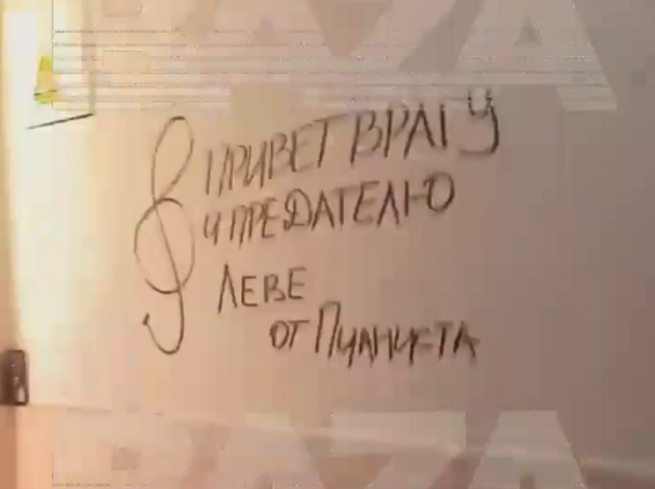 BAZA
ПРИВЕТ ВРАГУ
И ПРЕДАТЕЛЮ
ЛЕВЕ
ОТ ПИАНИСТА
BAZA